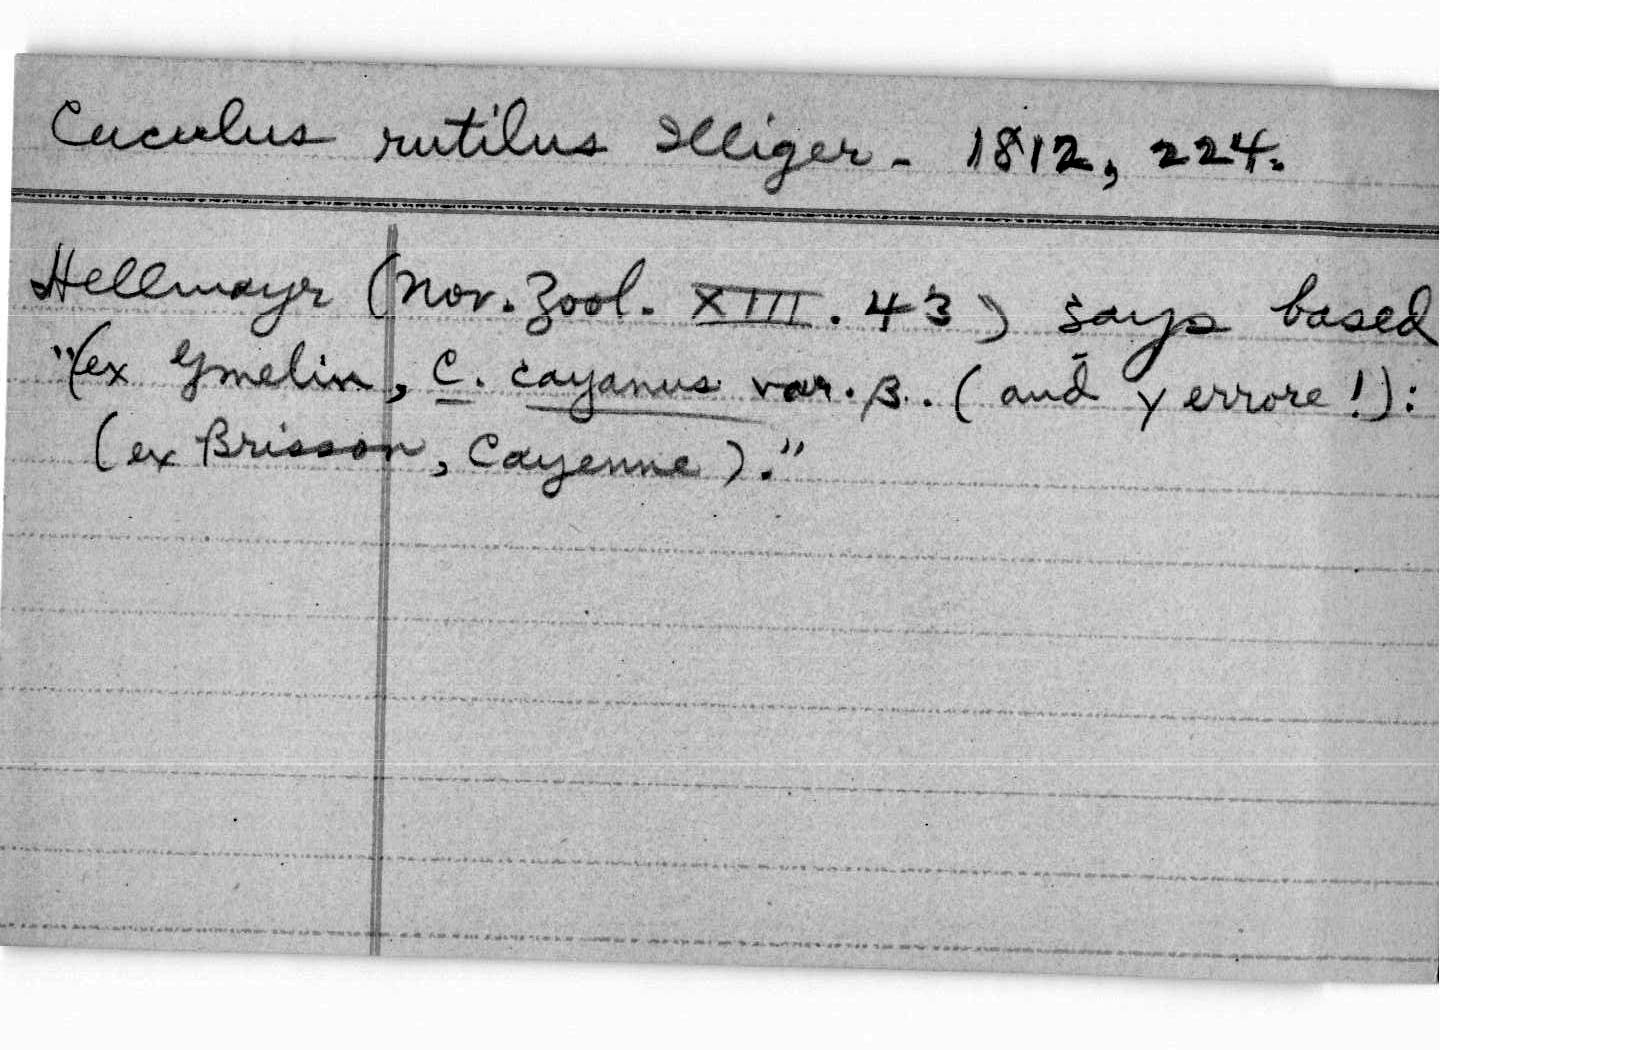 Cuculus rutilus Illiger - 1812, 224.
Hellmayr (Nov. Zool. XIII. 43) says based
"(ex Gmelin, C. cayanus var. β. (and γ errore!):
(ex Brisson, Cayenne)."